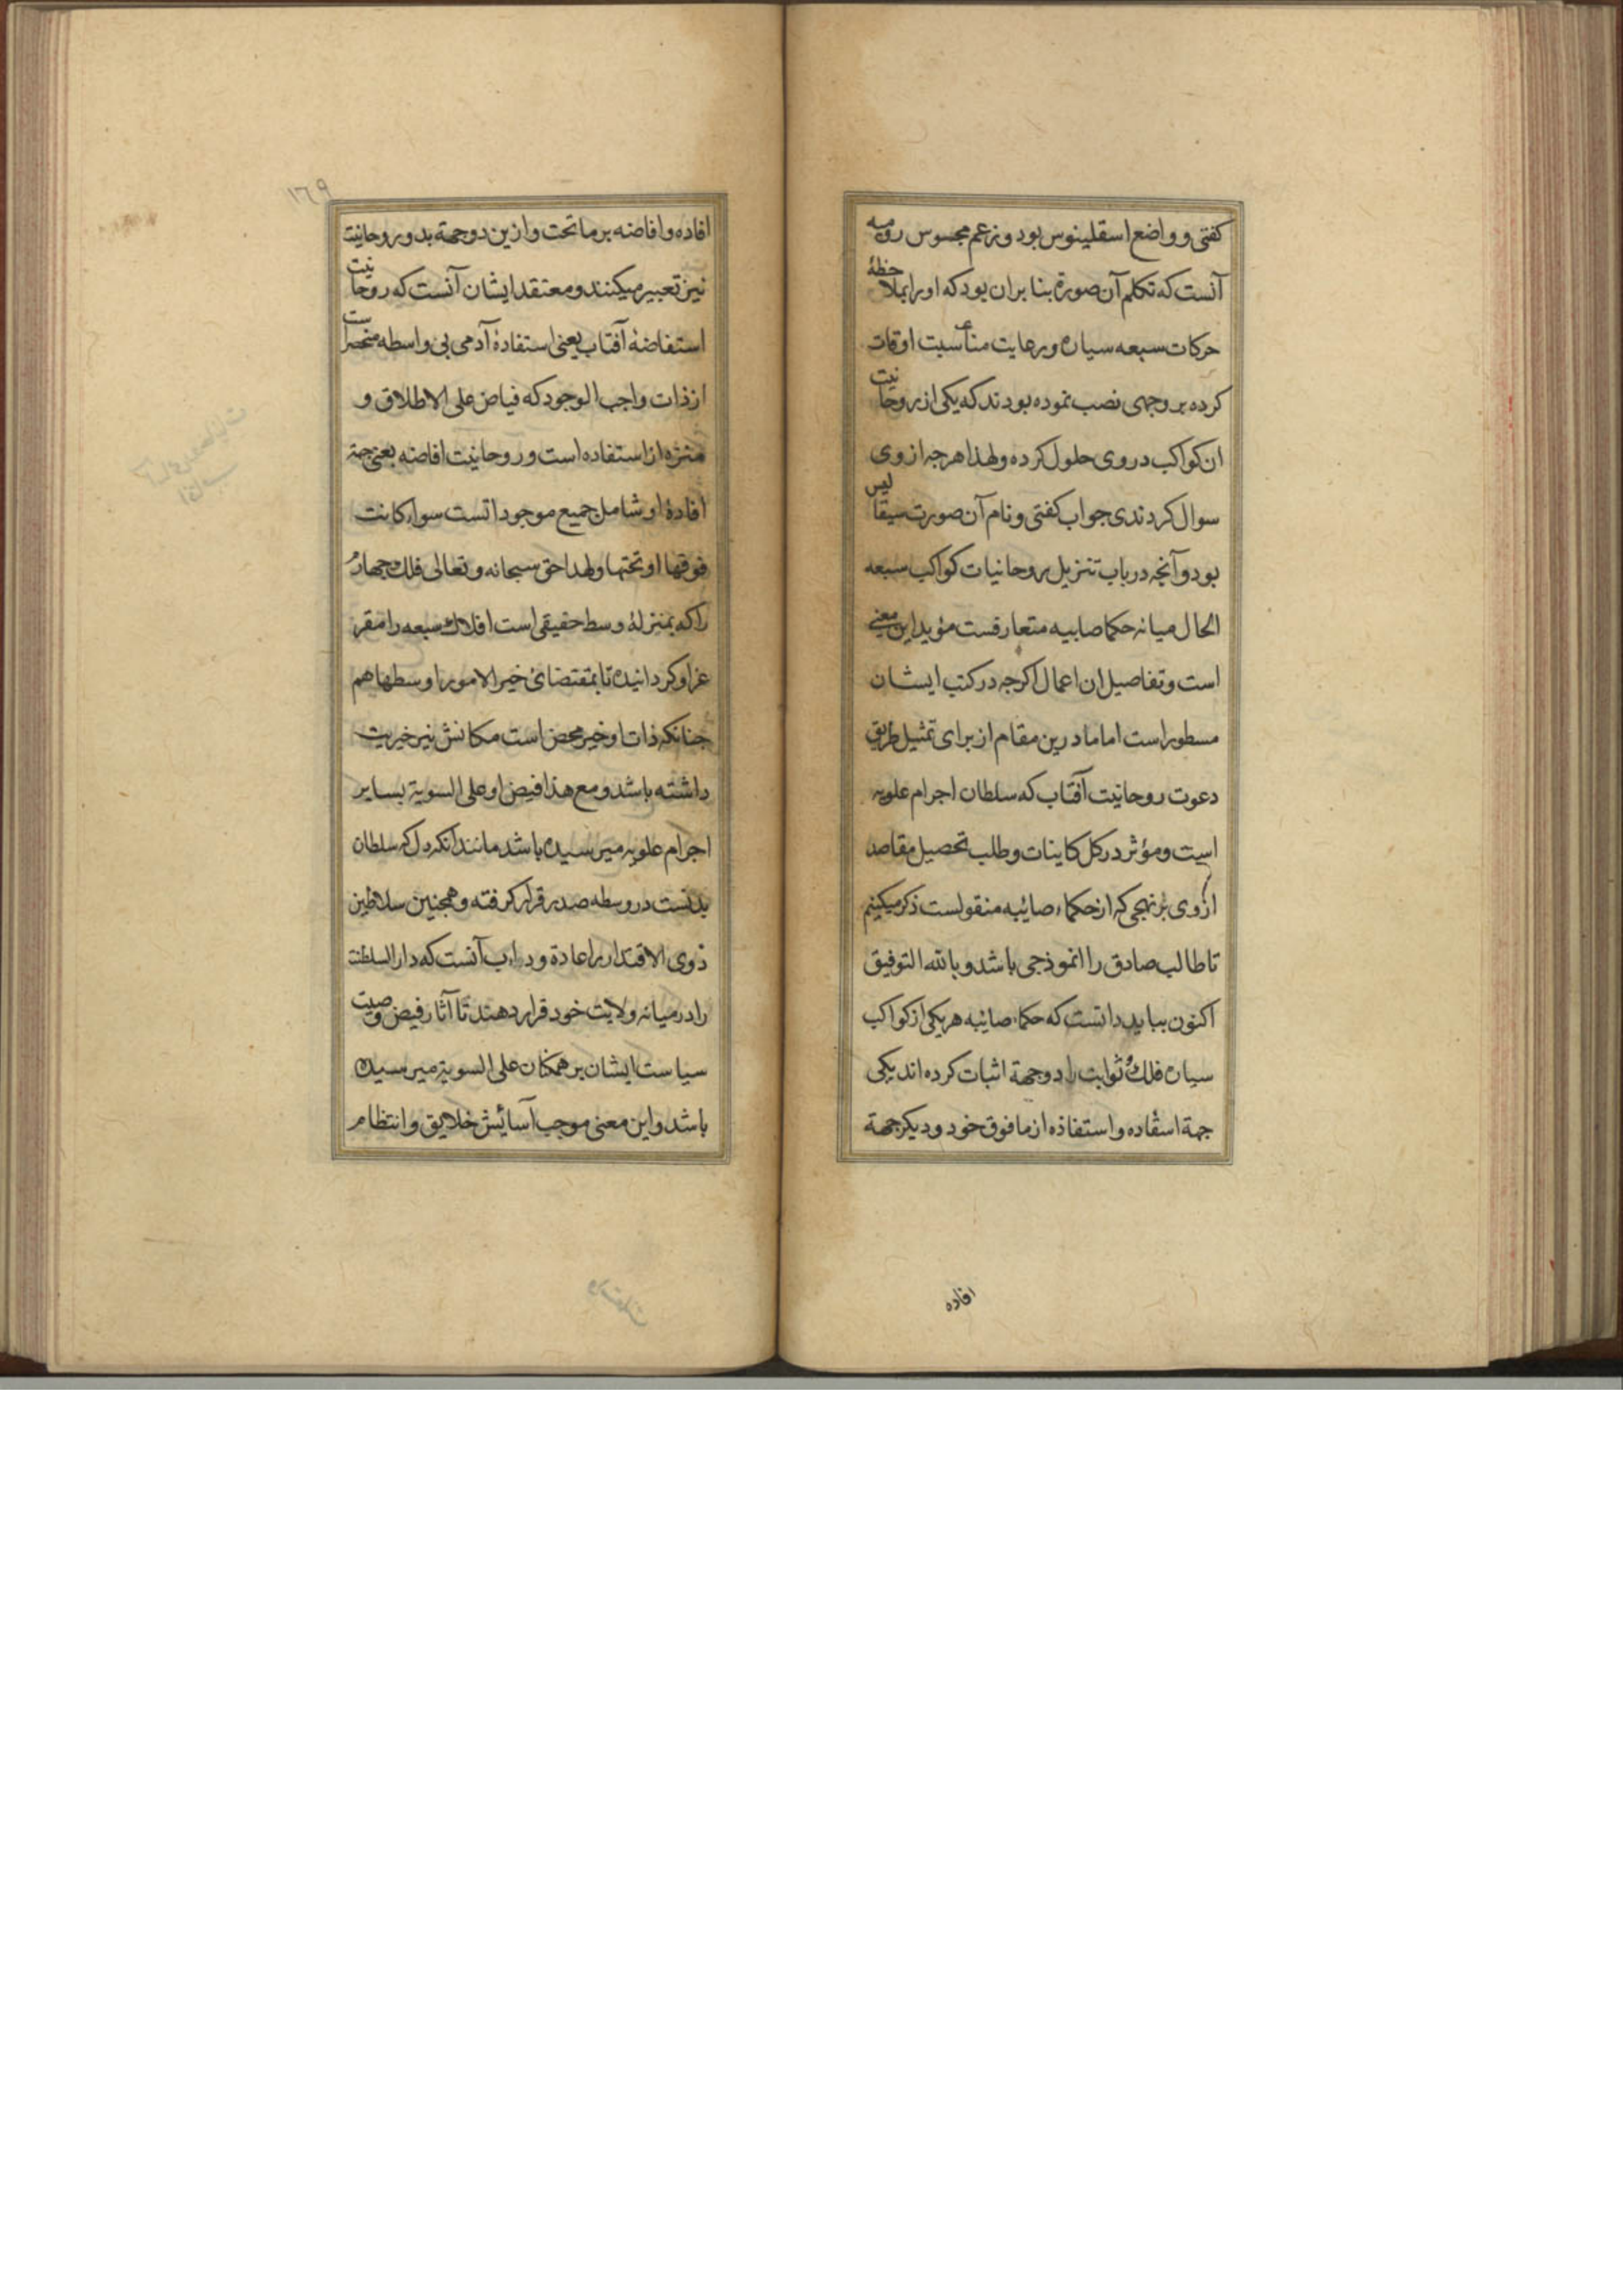 کفتی و واضع اسقلینوس بود و زعم مجسوس رومیه
آنست که تکلم آن صورة بنا بران بود که او را بملاحظهٔ
حرکات سبعه سیاره و برعایت مناسبت اوقات
کرده بر وجهی نصب نموده بودند که یکی از روحانیت
ان کواکب در وی حلول کرده و لهذا هرجه از وی
سوال کردندی جواب کفتی و نام آن صورت سیقالیس
بود و آنچه در باب تنزیل روحانیات کواکب سبعه
الحال میانه حکما صابیه متعارفست مؤید این معنی
است و تفاصیل ان اعمال اکرجه در کتب ایشان
مسطور است اما ما درین مقام از برای تمثیل طریق
دعوت روحانیت آفتاب که سلطان اجرام علویه
است و مؤثر در کل کاینات و طلب تحصیل مقاصد
ازوی بر نهجی که از حکماء صائبه منقولست ذکر میکنیم
تا طالب صادق را انموذجی باشد و بالله التوفیق
اکنون بباید دانست که حکماء صائبه هر یکی از کواکب
سیاره فلک ثوابت را دو جهة اثبات کرده اند یکی
جهة استفاده و استفاذه از ما فوق خود و دیکر جهة
افاده
١٦٩
افاده و افاضه بر ما تحت و ازین دو جهة بدو روحانیت
نیز تعبیر میکنند و معتقد ایشان آنست که روحانیت
استفاضهٔ آفتاب یعنی استفادهٔ آدمی بی واسطه منحصراست
از ذات واجب الوجود که فیاض علی الاطلاق و
منزه از استفاده است و روحانیت افاضه یعنی جهة
افادهٔ او شامل جمیع موجوداتست سواء کانت
فوقها او تحتها و لهذا حق سبحانه و تعالی فلک چهارم
را که بمنزلهٔ وسط حقیقی است افلاک سبعه را مقر
عز او کردانیده تا بمقتضای خیر الامور اوسطها هم
جنانکه ذات او خیر محض است مکانش نیز خیریت
داشته باشد و مع هذا فیض او علی السویة بسایر
اجرام علویه میرسیده باشد مانند آنکه دل که سلطان
بدنست در وسطه صدر قرار کرفته و همجنین سلاطین
ذوی الاقتدار را عادة و داب آنست که دار السلطنت
را در میانه ولایت خود قرار دهند تا آثار فیض و صیت
سیاست ایشان بر همکان علی السویة میرسیده
باشد و این معنی موجب آسائیش خلایق و انتظام